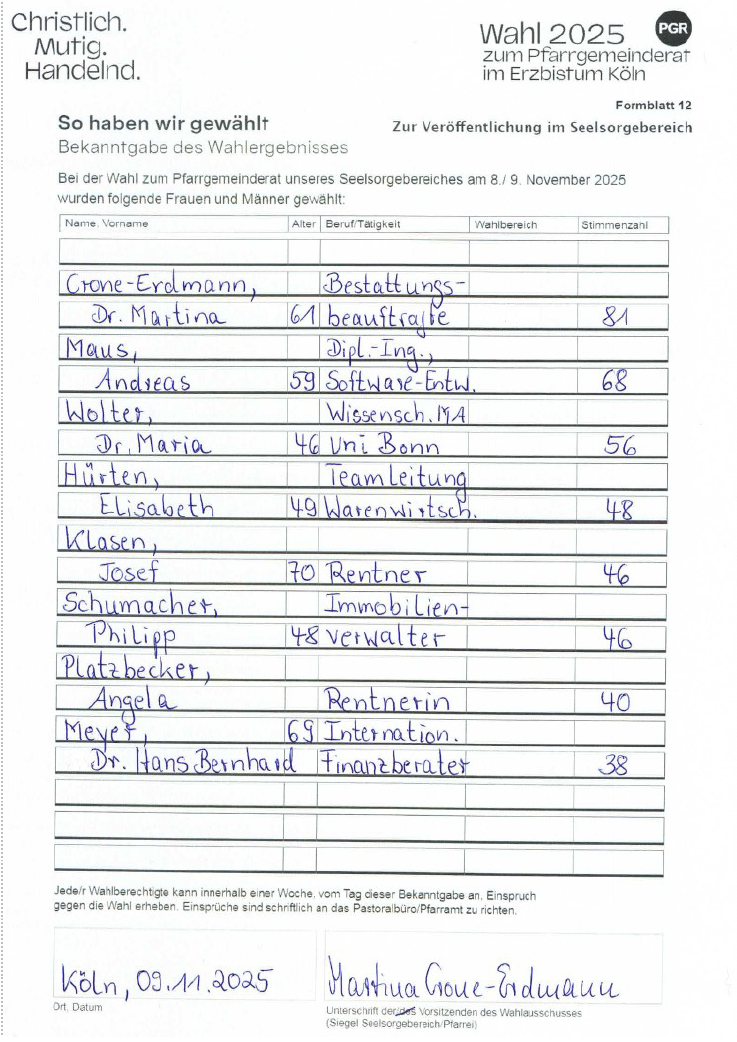 Christlich.
Mutig.
Handelnd.
Wahl 2025 PGR
zum Pfarrgemeinderat
im Erzbistum Köln
Formblatt 12
So haben wir gewählt
Zur Veröffentlichung im Seelsorgebereich
Bekanntgabe des Wahlergebnisses
Bei der Wahl zum Pfarrgemeinderat unseres Seelsorgebereiches am 8./ 9. November 2025
wurden folgende Frauen und Männer gewählt:
Name, Vorname Alter Beruf/Tätigkeit Wahlbereich Stimmenzahl
Crone-Erdmann, Bestattungs-
Dr. Martina 61 beauftragte 81
Maus, Dipl.-Ing.,
Andreas 59 Software-Entw. 68
Wolter, Wissensch. MA
Dr. Maria 46 Uni Bonn 56
Hürten, Teamleitung
Elisabeth 49 Warenwirtsch. 48
Klasen,
Josef 70 Rentner 46
Schumacher, Immobilien-
Philipp 48 verwalter 46
Platzbecker,
Angela Rentnerin 40
Meyer, 69 Internation.
Dr. Hans Bernhard Finanzberater 38
Jede/r Wahlberechtigte kann innerhalb einer Woche, vom Tag dieser Bekanntgabe an, Einspruch
gegen die Wahl erheben. Einsprüche sind schriftlich an das Pastoralbüro/Pfarramt zu richten.
Köln, 09.11.2025 Martina Crone-Erdmann
Ort, Datum
Unterschrift der/des Vorsitzenden des Wahlausschusses
(Siegel Seelsorgebereich/Pfarrei)